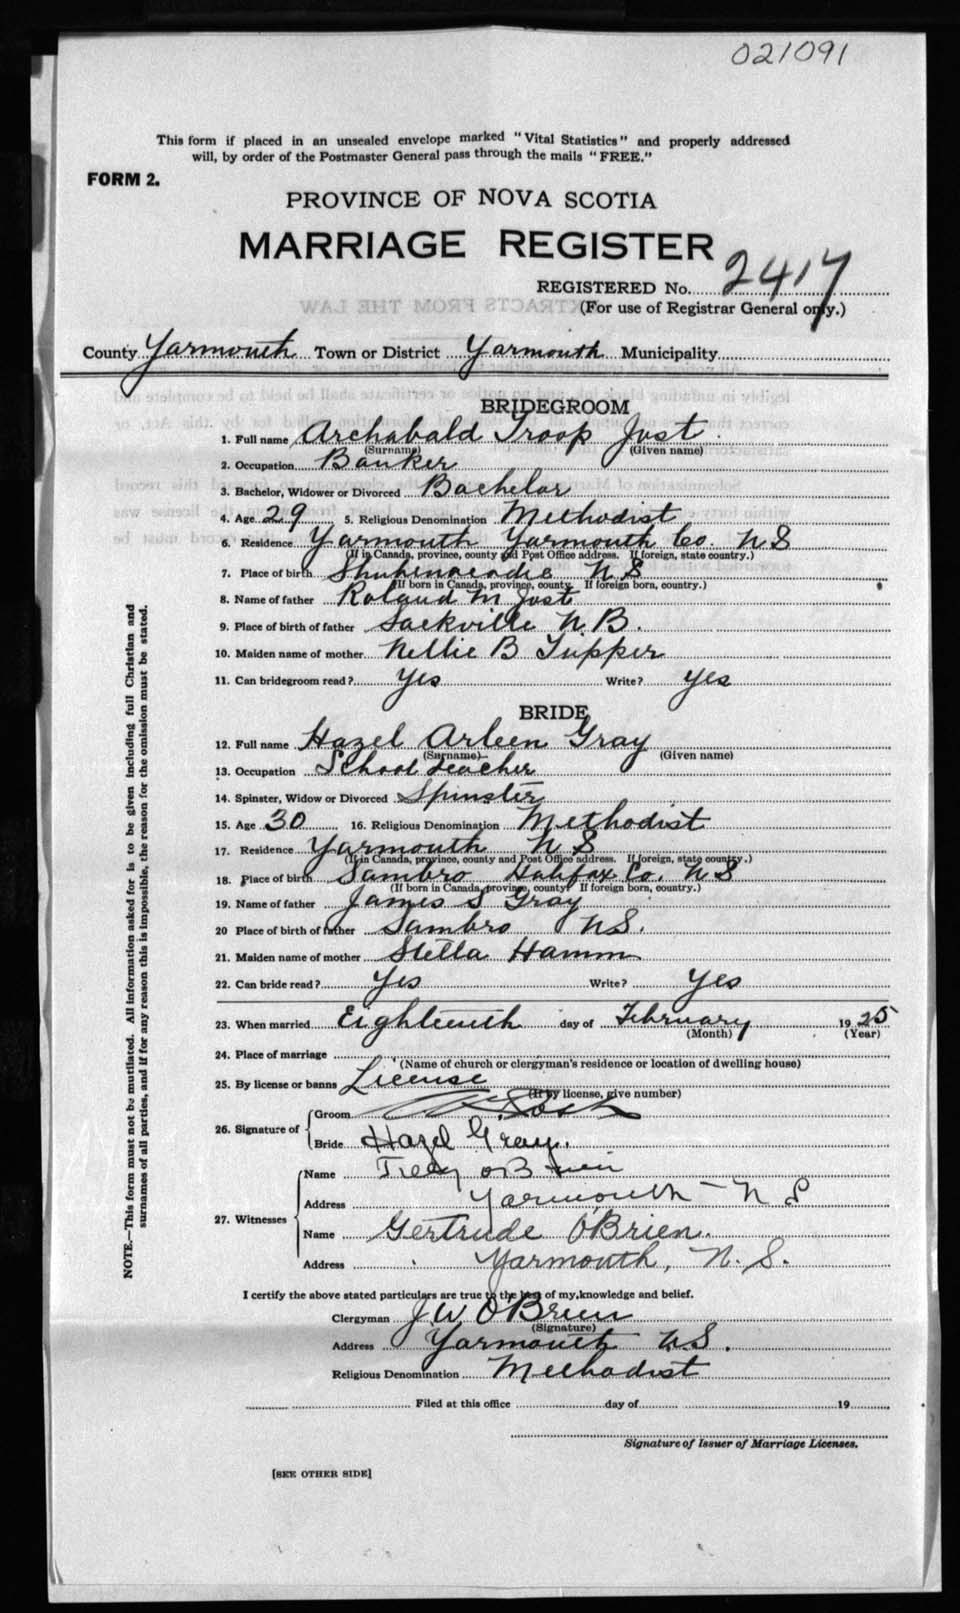 021091
This form if placed in an unsealed envelope marked "Vital Statistics" and properly addressed
will, by order of the Postmaster General pass through the mails "FREE."
FORM 2.
PROVINCE OF NOVA SCOTIA
MARRIAGE REGISTER
REGISTERED No. 2417
(For use of Registrar General only.)
EXTRACTS FROM THE LAW
County Yarmouth Town or District Yarmouth Municipality
BRIDEGROOM
1. Full name Archabald Troop Jost
(Surname) (Given name)
2. Occupation Banker
3. Bachelor, Widower or Divorced Bachelor
4. Age 29 5. Religious Denomination Methodist
6. Residence Yarmouth Yarmouth Co. N S
(If in Canada, province, county and Post Office address. If foreign, state country.)
7. Place of birth Shubenacadie N S
(If born in Canada, province, county. If foreign born, country.)
8. Name of father Roland M Jost
9. Place of birth of father Sackville N. B.
10. Maiden name of mother Nellie B Tupper
11. Can bridegroom read? Yes Write? Yes
BRIDE
12. Full name Hazel Arleen Gray
(Surname) (Given name)
13. Occupation School teacher
14. Spinster, Widow or Divorced Spinster
15. Age 30 16. Religious Denomination Methodist
17. Residence Yarmouth N S
(If in Canada, province, county and Post Office address. If foreign, state country.)
18. Place of birth Sambro Halifax Co. N S
(If born in Canada, province, county. If foreign born, country.)
19. Name of father James S Gray
20 Place of birth of father Sambro N S.
21. Maiden name of mother Stella Hamm
22. Can bride read? Yes Write? Yes
23. When married Eighteenth day of February 1925
(Month) (Year)
24. Place of marriage
(Name of church or clergyman's residence or location of dwelling house)
25. By license or banns License
(If by license, give number)
26. Signature of Groom
Bride Hazel Gray.
27. Witnesses Name O'Brien
Address Yarmouth - N S
Name Gertrude O'Brien.
Address Yarmouth, N. S.
I certify the above stated particulars are true to the best of my knowledge and belief.
Clergyman J W O'Brien
(Signature)
Address Yarmouth N S.
Religious Denomination Methodist
Filed at this office day of 19
Signature of Issuer of Marriage Licenses.
[SEE OTHER SIDE]
NOTE.—This form must not be mutilated. All information asked for is to be given including full Christian and
surnames of all parties, and if for any reason this is impossible, the reason for the omission must be stated.